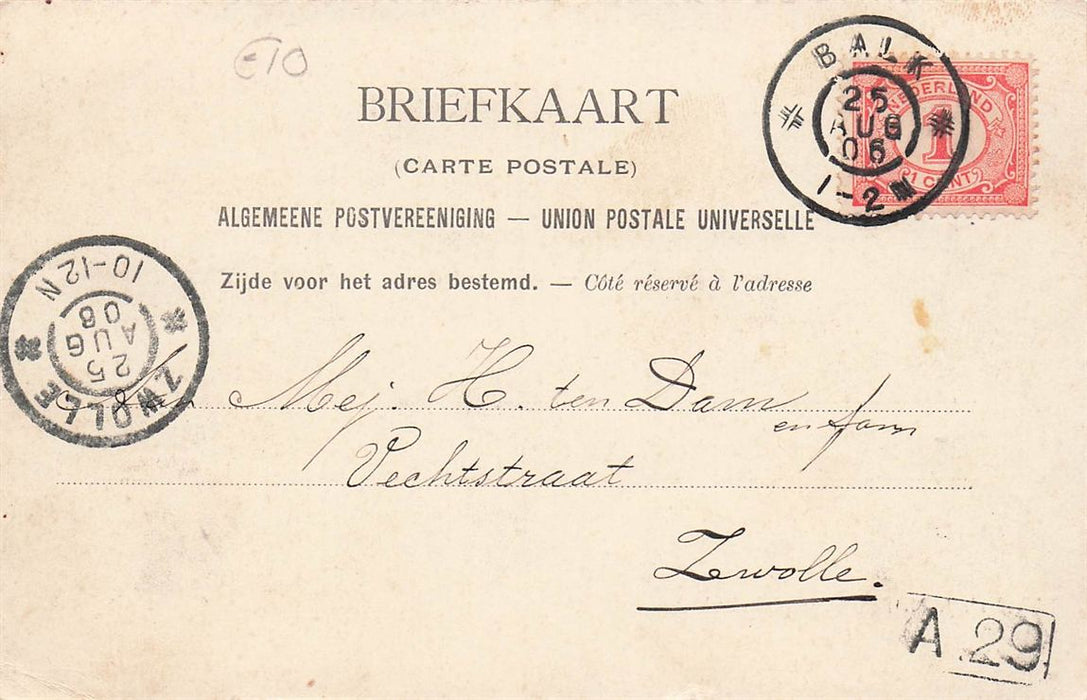 €10
BRIEFKAART
(CARTE POSTALE)
ALGEMEENE POSTVEREENIGING — UNION POSTALE UNIVERSELLE
Zijde voor het adres bestemd. — Côté réservé à l'adresse
BALK
25
AUG
06
1-2N
NEDERLAND
1
1 CENT
10-12N
25
AUG
06
ZWOLLE
Mej. H. ten Dam
en fam
Vechtstraat
Zwolle.
A.29.